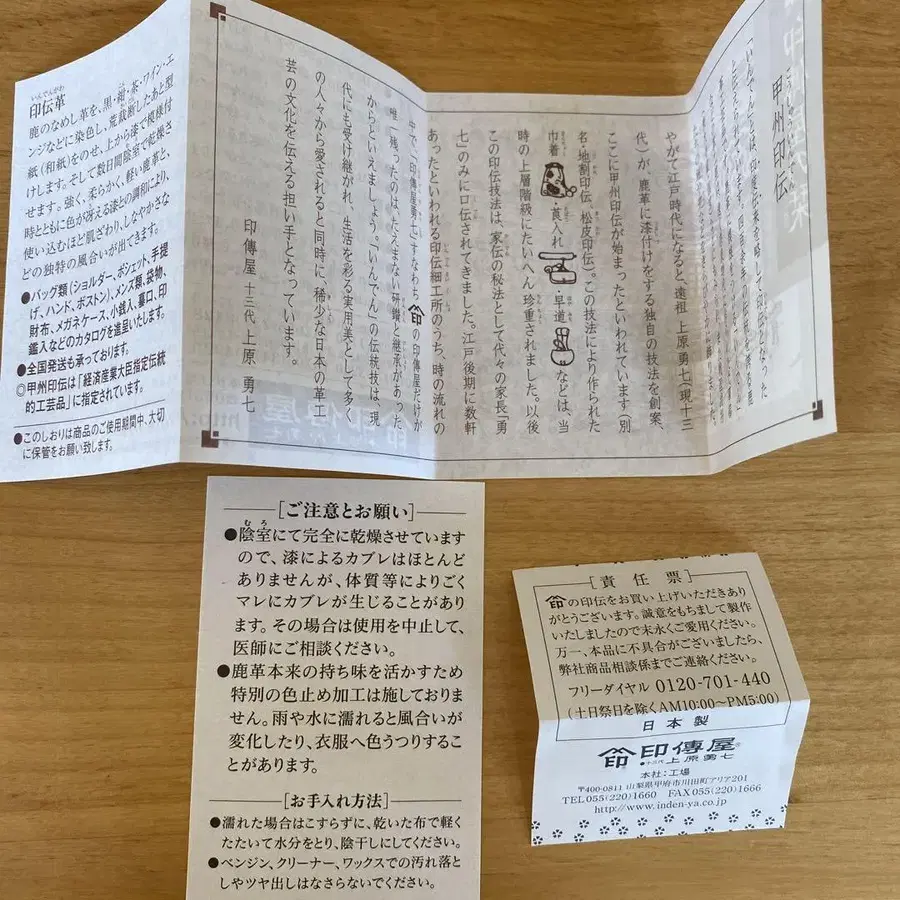 甲州印伝
やがて江戸時代になると遠祖 上原勇七(現十三
代)が、鹿革に漆付けをする独自の技法を創案、
ここに甲州印伝が始まったといわれています(別
名・地割印伝、松皮印伝)。この技法により作られた
巾着・莨入れ・早道などは、当
時の上層階級にたいへん珍重されました。以後
この印伝技法は、家伝の秘法として代々の家長「勇
七」のみに口伝されてきました。江戸後期に数軒
あったといわれる印伝細工所のうち、時の流れの
中で「印傳屋勇七」すなわち印の印傳屋だけが
唯一残ったのは、たえまない研鑽と継承があった
からといえましょう。“いんでん”の伝統技は、現
代にも受け継がれ、生活を彩る実用美として多く
の人々から愛されると同時に、稀少な日本の革工
芸の文化を伝える担い手となっています。
印傳屋 十三代 上原 勇七
いんでんがわ
印伝革
鹿のなめし革を、黒・紺・茶・ワイン・エ
ンジなどに染色し、荒裁断したあと型
紙(和紙)をのせ、上から漆で模様付
けします。そして数日間陰室で乾燥さ
せます。強く、柔らかく、軽い鹿革と、
時とともに色が冴える漆との調和により、
使い込むほど肌ざわり、しなやかさな
どの独特の風合いが出てきます。
●バッグ類(ショルダー、ポシェット、手提
げ、ハンド、ボストン)、メンズ類、袋物、
財布、メガネケース、小銭入、蟇口、印
鑑入などのカタログを進呈いたします。
●全国発送も承っております。
◎甲州印伝は「経済産業大臣指定伝統
的工芸品」に指定されています。
●このしおりは商品のご使用期間中、大切
に保管をお願い致します。
[ご注意とお願い]
むろ
●陰室にて完全に乾燥させています
ので、漆によるカブレはほとんど
ありませんが、体質等によりごく
マレにカブレが生じることがあり
ます。その場合は使用を中止して、
医師にご相談ください。
●鹿革本来の持ち味を活かすため
特別の色止め加工は施しておりま
せん。雨や水に濡れると風合いが
変化したり、衣服へ色うつりするこ
とがあります。
[お手入れ方法]
●濡れた場合はこすらずに、乾いた布で軽く
たたいて水分をとり、陰干しにしてください。
●ベンジン、クリーナー、ワックスでの汚れ落と
しやツヤ出しはなさらないでください。
[責任票]
印の印伝をお買い上げいただきあり
がとうございます。誠意をもちまして製作
いたしましたので末永くご愛用ください。
万一、本品に不具合がございましたら、
弊社商品相談係までご連絡ください。
フリーダイヤル 0120-701-440
(土日祭日を除くAM10:00~PM5:00)
日本製
印 印傳屋®
十三代 上原勇七
本社:工場
〒400-0811 山梨県甲府市川田町アリア201
TEL055(220)1660 FAX055(220)1666
http://www.inden-ya.co.jp